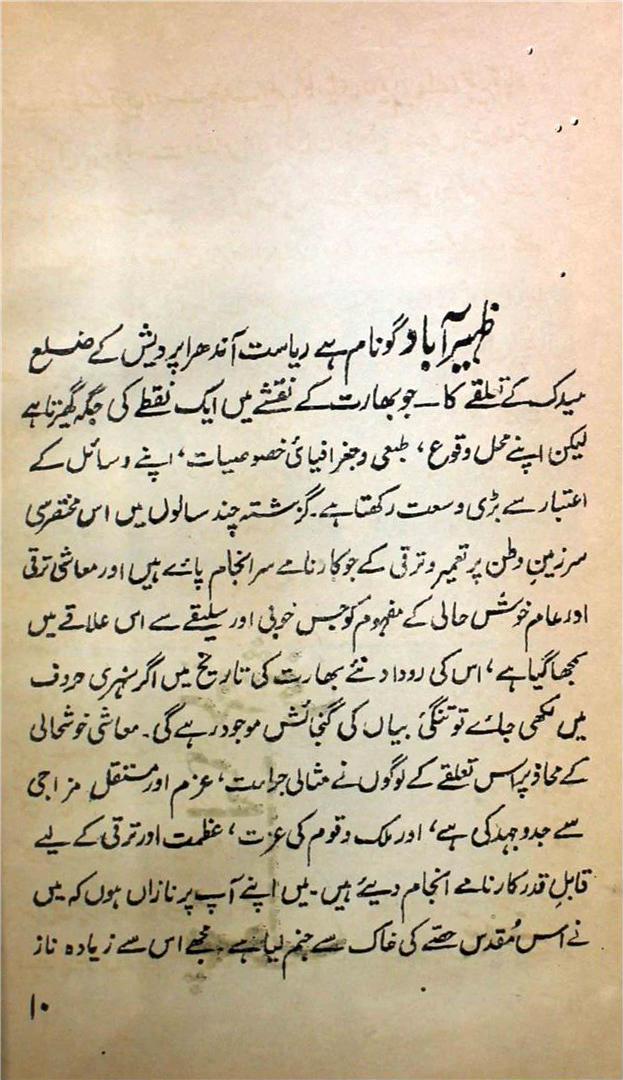 ظہیرآباد گو نام ہے ریاست آندھرا پردیش کے ضلع
میدک کے تعلقے کا ــ جو بھارت کے نقشے میں ایک نقطے کی جگہ گھیرتا ہے
لیکن اپنے محل وقوع، طبعی و جغرافیائی خصوصیات، اپنے وسائل کے
اعتبار سے بڑی وسعت رکھتا ہے۔ گزشتہ چند سالوں میں اس مختصر سی
سرزمینِ وطن پر تعمیر و ترقی کے جو کارنامے سر انجام پائے ہیں اور معاشی ترقی
اور عام خوش حالی کے مفہوم کو جس خوبی اور سلیقے سے اس علاقے میں
سمجھا گیا ہے، اس کی روداد نئے بھارت کی تاریخ میں اگر سنہری حروف
میں لکھی جائے تو تنگیٔ بیاں کی گنجائش موجود رہے گی۔ معاشی خوشحالی
کے محاذ پر اس تعلقے کے لوگوں نے مثالی جراءت، عزم اور مستقل مزاجی
سے جدوجہد کی ہے، اور ملک و قوم کی عزت، عظمت اور ترقی کے لیے
قابلِ قدر کارنامے انجام دیئے ہیں۔ میں اپنے آپ پر نازاں ہوں کہ میں
نے اس مُقدس حصّے کی خاک سے جنم لیا ہے۔ مجھے اس سے زیادہ ناز
۱۰